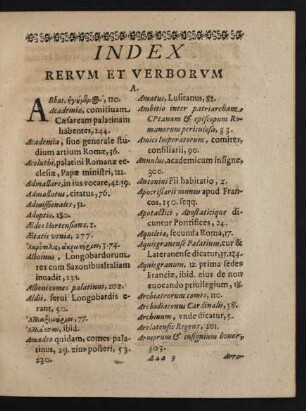 INDEX
RERVM ET VERBORVM
A.
ABbas. 110.
Academiæ, comitiuam,
Cæsaream palatinam
habentes, 244.
Academia, siue generale stu-
dium artium Romæ, 36.
Acoluthi, palatini Romanæ ec-
clesiæ, Papæ ministri, 112.
Admallare, in ius vocare, 42.59.
Admallatus, citatus, 76.
Admissionales, 51.
Adoptio, 180.
Ædes Hortensiana, 2.
Ætatis venia, 277.
3.74.
Alboinus, Longobardorum
rex cum Saxonibus Italiam
inuadit, 131.
Albenitones palatinus, 202.
Aldii, serui Longobardis e-
rant, 50.
77.
ibid.
Amades quidam, comes pala-
tinus, 29. eius posteri, 53.
230.
Amatus, Lusitanus, 81.
Ambitio inter patriarcham
CPtanum & episcopum Ro-
manorum periculosa, 33.
Amici Imperatorum, comites,
consiliarii, 90.
Annulus, academicum insigne,
300.
Antonini Pii habitatio, 2.
Apocrisiarii munus apud Fran-
cos, 150. seqq.
Apotactici, Apostatitique di-
cuntur Pontifices, 24.
Appoldia, secunda Roma, 17.
Aquisgranense Palatium, cur &
Lateranense dicatur, 31.124.
Aquisgranum, 12. prima sedes
Franciæ, ibid. eius de non
euocando priuilegium, 18.
Archiatrorum comes, 110.
Archidiaconus Cardinalis, 58.
Archinum, vnde dicatur, 5.
Arelatensis Regens, 201.
Armorum & insignium honor,
303.
Aaa 3
Arro-